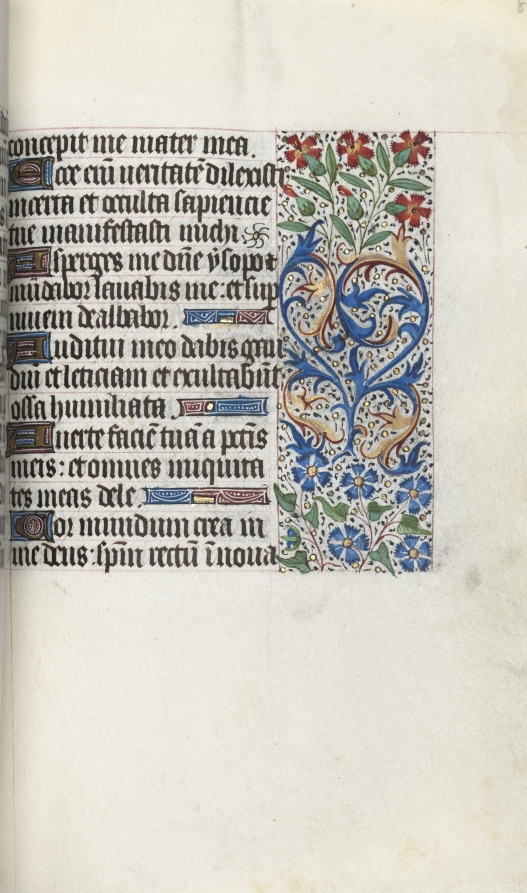 concepit me mater mea.
Ecce eiū ueritatē dilexisti
incerta et occulta sapiencie
tue manifestasti michi.
Asperges me dñe ysopo ⁊
mūdabor lauabis me: et sup
niuem dealbabor.
Auditui meo dabis gau
diū et leticiam et exultabūt
ossa humiliata.
Auerte faciē tuā a pctis
meis: et omnes iniquita
tes meas dele.
Cor mundum crea in
me deus: spm rectū ī noua